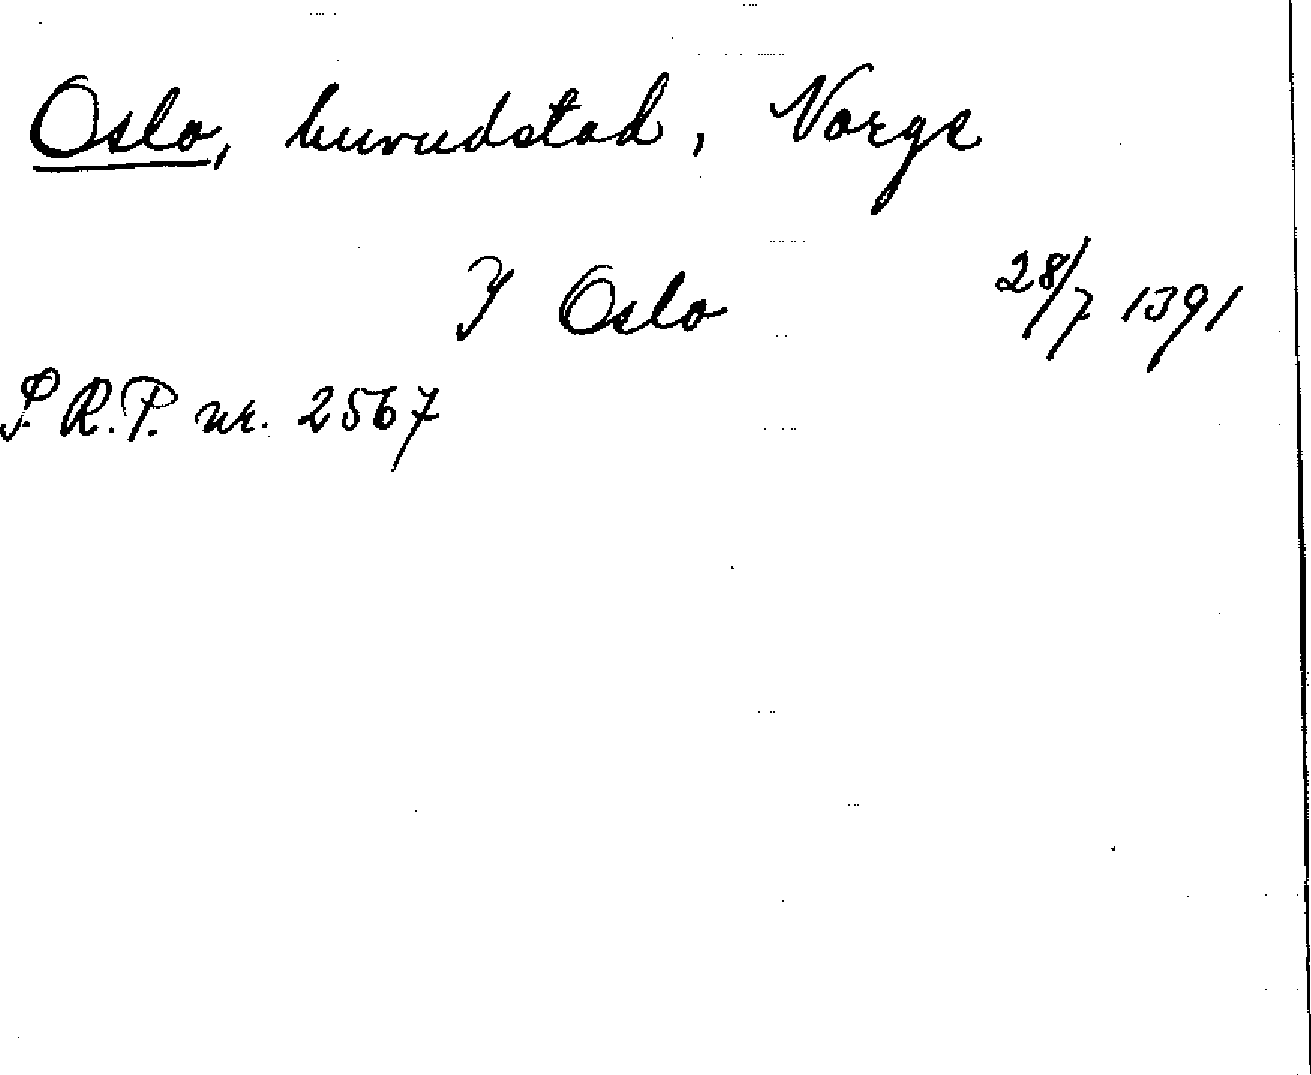 Oslo, huvudstad, Norge
I Oslo 28/7 1391
S.R.P. nr. 2567